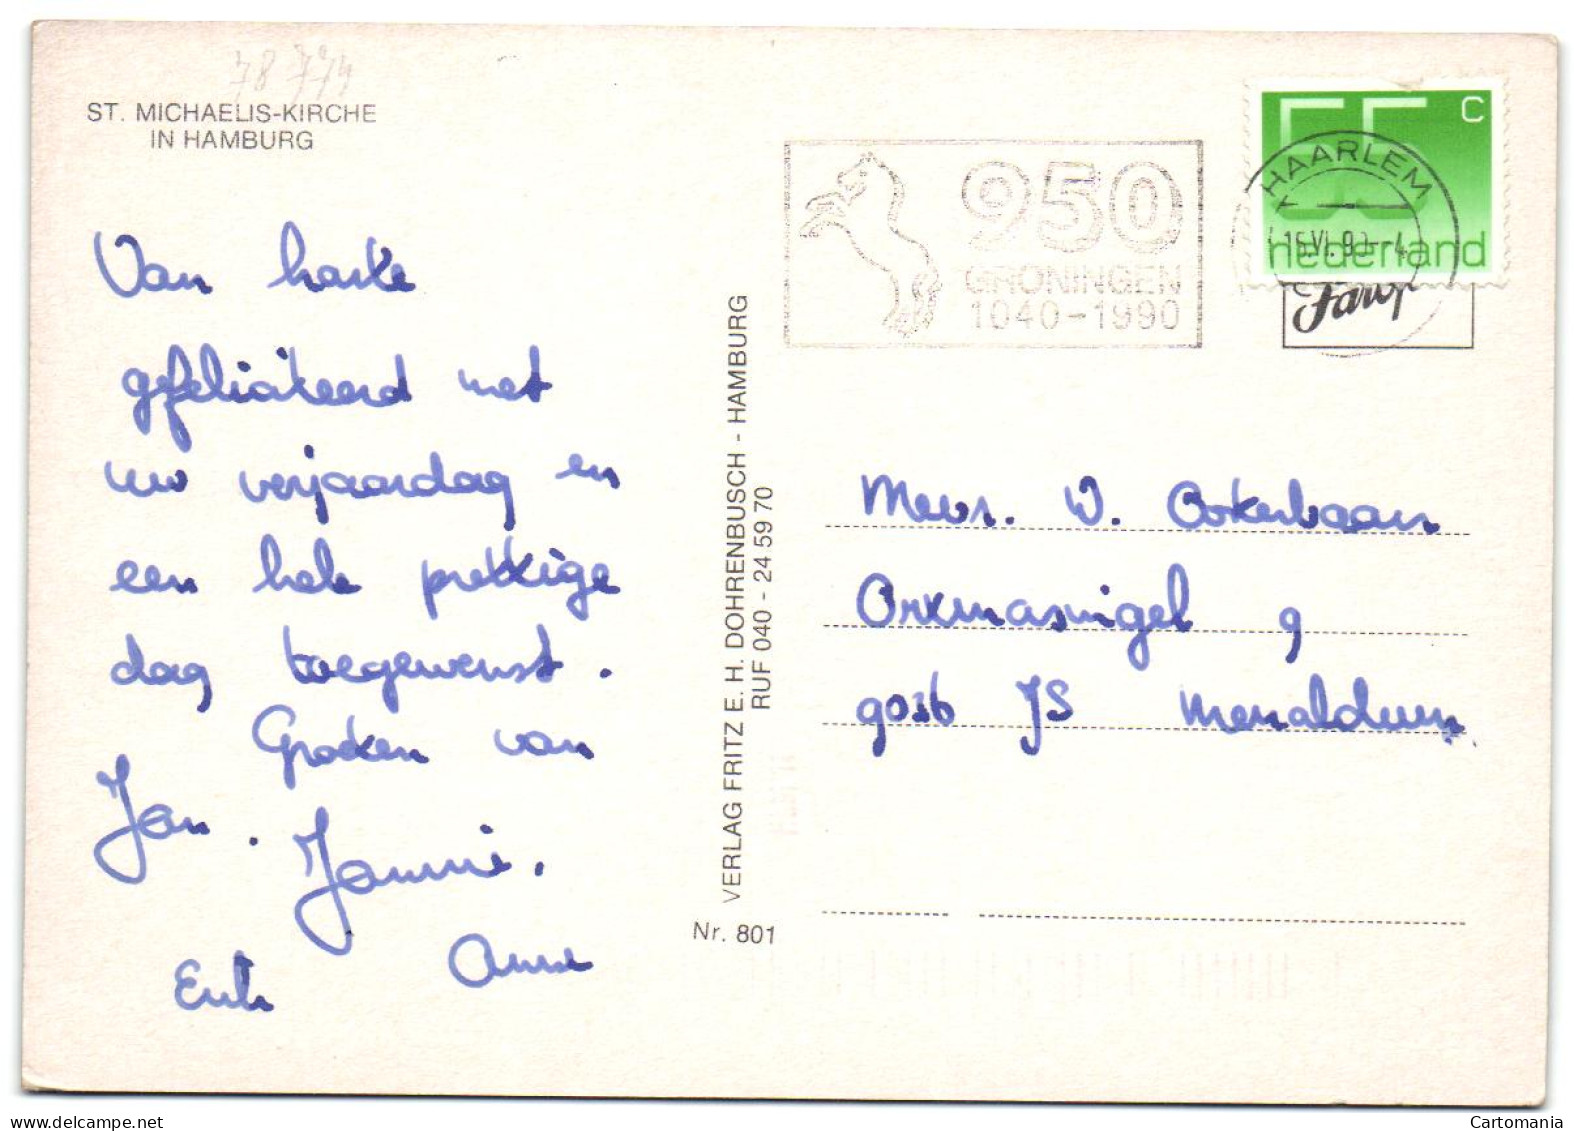 78 774
ST. MICHAELIS-KIRCHE
IN HAMBURG
Van harte
gefeliciteerd met
uw verjaardag en
een hele prettige
dag toegewenst.
Groeten van
Jan. Jannie.
Erik Anne
VERLAG FRITZ E. H. DOHRENBUSCH - HAMBURG
RUF 040 - 24 59 70
Nr. 801
950
GRONINGEN
1040-1990
55 C
nederland
HAARLEM
15.VI.90.-4
Mevr. W.
9
9036 JS Menaldum
Cartomania
www.delcampe.net